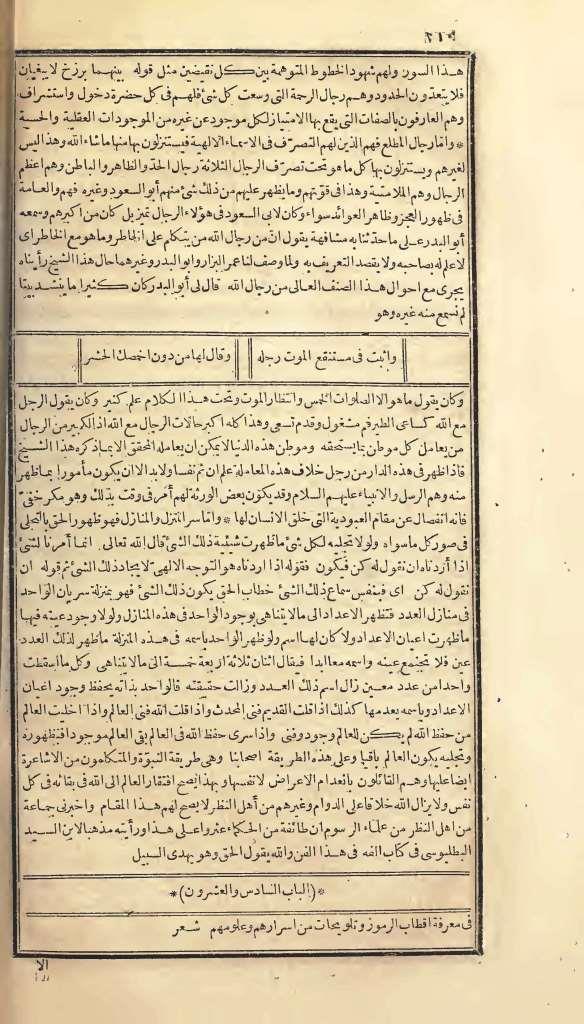 ٢١٣
هـذا السور ولهم شهود الخطوط المتوهمة بين كل نقيضين مثل قوله بينهما برزخ لا يبغيان
فلا يتعدّون الحدود وهـم رجال الرحمة التى وسعت كل شئ فلهم فى كل حضرة دخول واستشراف
وهم العارفون بالصفات التى يقع بها الامتياز لكل موجود عن غيره من الموجودات العقلية والحسية
* وأمّا رجال المطلع فهم الذين لهم التصرّف فى الاسماء الالهية فيستنزلون بها منها ماشاء الله وهذا ليس
لغيرهم ويستنزلون بها كل ما هو تحت تصرّف الرجال الثلاثة رجال الحدّ والظاهر والباطن وهم اعظم
الرجال وهم الملامتية وهذا فى قوّتهم وما يظهر عليهم من ذلك شئ منهم أبو السعود وغيره فهم والعامة
فى ظهور العجز وظاهر العوائد سواء وكان لابى السعود فى هؤلاء الرجال تميز بل كان من اكبرهم وسمعه
أبو البدر على ما حدّثنا به مشافهة يقول انّ من رجال الله من يتكلم على الخاطر وما هو مع الخاطر اى
لا علم له بصاحبه ولا يقصد التعريف به ولما وصف لنا عمر البزار وأبو البدر وغيرهما حال هذا الشيخ رأيناه
يجرى مع احوال هذا الصنف العالى من رجال الله قال لى أبو البدر كان كثيرا ما ينشد بيتا
لم نسمع منه غيره وهو
واثبت فى مستنقع الموت رجله وقال لها من دون اخمصك الحشر
وكان يقول ما هو الا الصلوات الخمس وانتظار الموت وتحت هذا الكلام علم كبير وكان يقول الرجل
مع الله كساعى الطير فم مشغول وقدم تسعى وهذا كله اكبر حالات الرجال مع الله اذ الكبير من الرجال
من يعامل كل موطن بما يستحقه وموطن هذه الدنيا لا يمكن ان يعامله المحقق الا بما ذكره هذا الشيخ
فاذا ظهر فى هذه الدار من رجل خلاف هذه المعاملة علم ان ثم نفسا ولا بدّ الا ان يكون مأمورا بما ظهر
منه وهم الرسل والانبياء عليهم السلام وقد يكون بعض الورثة لهم أمر فى وقت بذلك وهو مكر خفىّ
فانه انفصال عن مقام العبودية التى خلق الانسان لها * وامّا سرّ المنزل والمنازل فهو ظهور الحق بالتجلى
فى صور كل ما سواه ولولا تجليه لكل شئ ما ظهرت شيئية ذلك الشئ قال الله تعالى انما أمرنا لشئ
اذا أردناه ان نقول له كن فيكون فقوله اذا اردناه هو التوجه الالهى لايجاد ذلك الشئ ثم قوله ان
نقول له كن اى فبنفس سماع ذلك الشئ خطاب الحق يكون ذلك الشئ فهو بمنزلة سريان الواحد
فى منازل العدد فتظهر الاعداد الى ما لا يتناهى بوجود الواحد فى هذه المنازل ولولا وجود عينه فيها
ما ظهرت اعيان الاعداد ولا كان لها اسم ولو ظهر الواحد باسمه فى هذه المنزلة ما ظهر لذلك العدد
عين فلا تجتمع عينه واسمه معا ابدا فيقال اثنان ثلاثة أربعة خمسة الى ما لا يتناهى وكل ما اسقطت
واحدا من عدد معين زال اسم ذلك العدد وزالت حقيقته فالواحد بذاته يحفظ وجود اعيان
الاعداد وباسمه يعدمها كذلك اذا قلت القديم فنى المحدث واذا قلت الله فنى العالم واذا اخليت العالم
من حفظ الله لم يكن للعالم وجود وفنى واذا سرى حفظ الله فى العالم بقى العالم موجودا فبظهوره
وتجليه يكون العالم باقيا وعلى هذه الطريقة اصحابنا وهى طريقة النبوّة والمتكلمون من الاشاعرة
ايضا عليها وهم القائلون بانعدام الاعراض لانفسها وبهذا يصح افتقار العالم الى الله فى بقائه فى كل
نفس ولا يزال الله خلاقا على الدوام وغيرهم من أهل النظر لا يصح لهم هذا المقام واخبرنى جماعة
من اهل النظر من علماء الرسوم ان طائفة من الحكماء عثروا على هذا ورأيته مذهبا لابن السيد
البطليوسى فى كتاب الفه فى هذا الفن والله يقول الحق وهو يهدى السبيل
*(الباب السادس والعشرون)*
فى معرفة اقطاب الرموز وتلويحات من اسرارهم وعلومهم شعر
الا